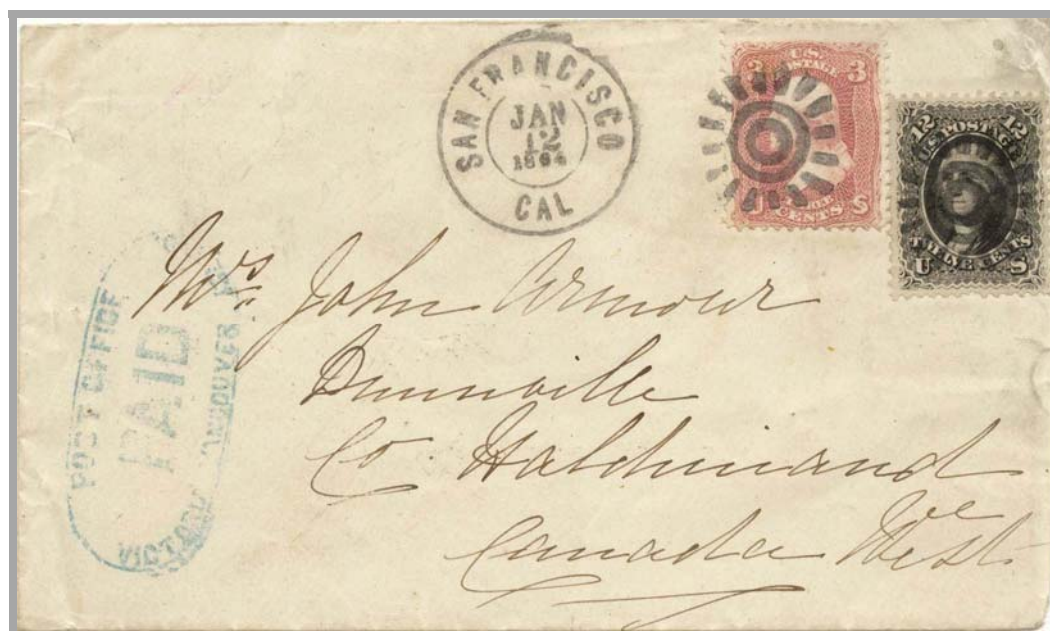 SAN FRANCISCO
JAN
12
1864
CAL
3 3
U.S.
POSTAGE
CENTS
S
12 12
U.S. POSTAGE
TWELVE CENTS
U S
POST OFFICE
PAID
VICTORIA VANCOUVER
Mrs John Armour
Dunnville
Co. Haldimand
Canada West